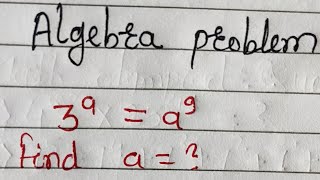 Algebra problem
3^a = a^9
find a = ?